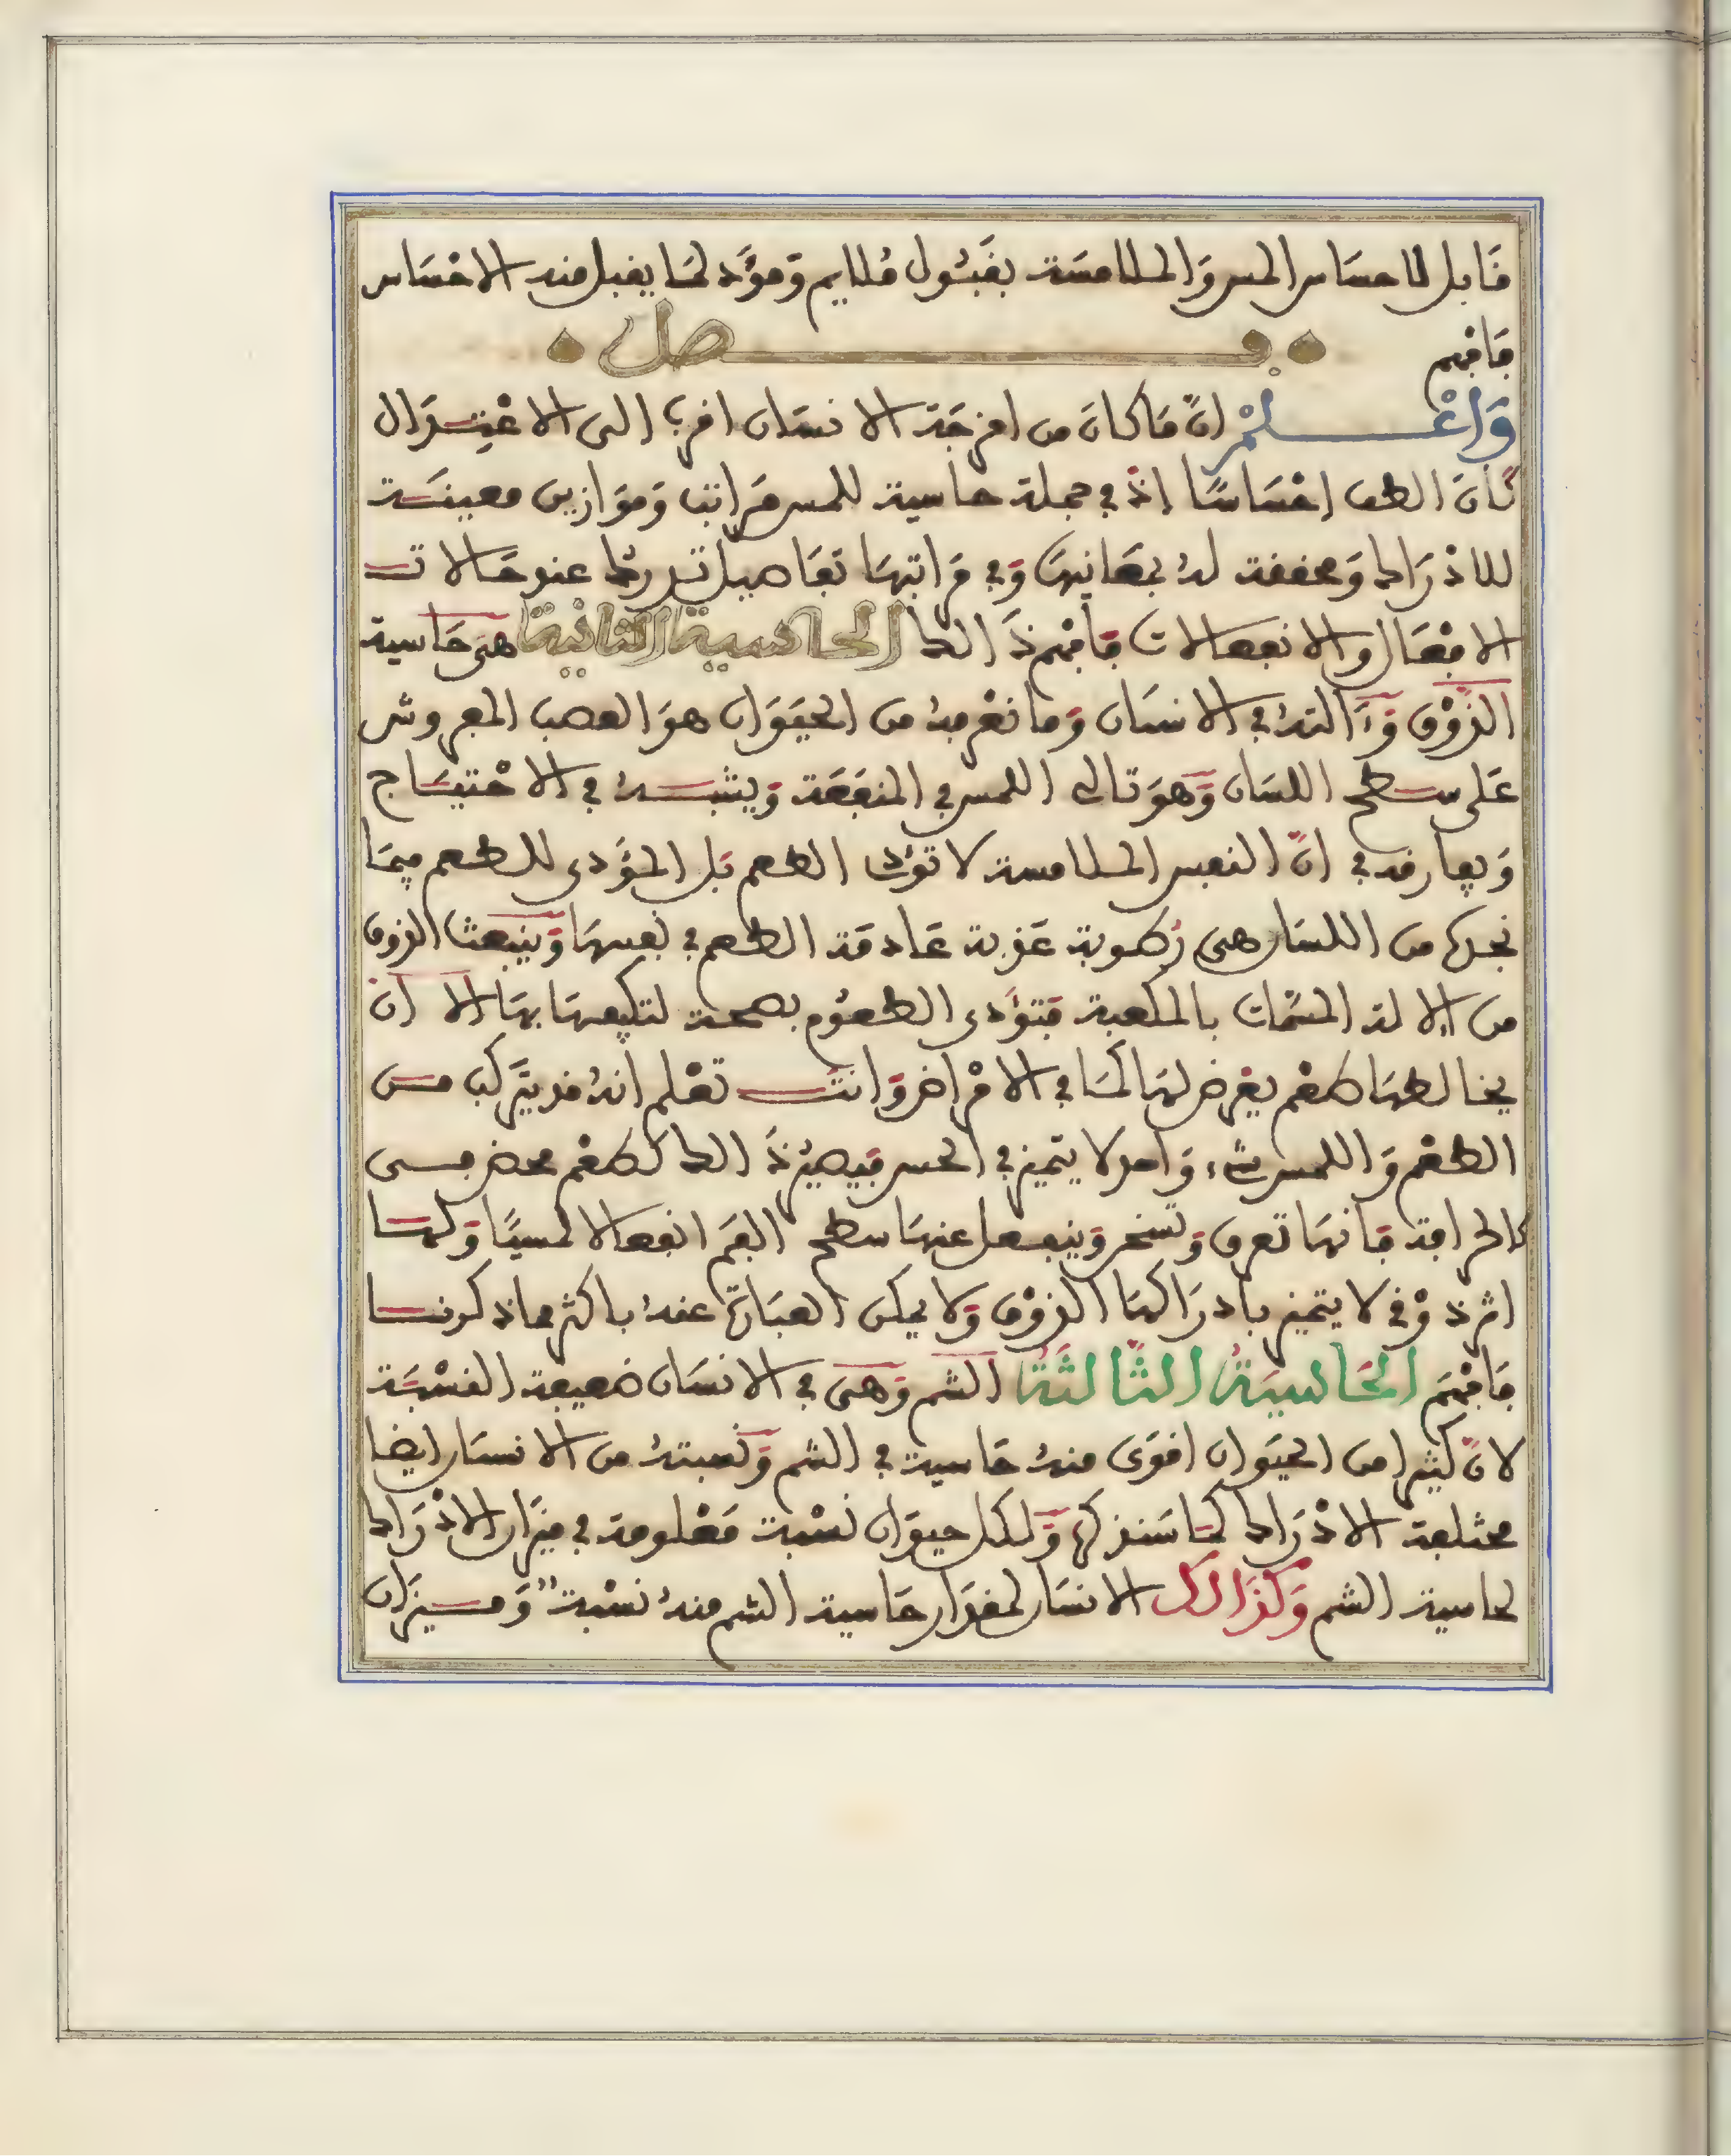 قابل للاحساس المس والملامسة بقبول ملايم ومؤد لما يقبل منه الاحساس
فافهم
فصل
واعلم ان ما كان من امزجة الانسان اقرب الى الاعتدال
كان الطف احساسا اذ في جملة حاسية للمس مراتب وموازين معينة
للادراك ومحققة له بمعانيها وفي مراتبها تفاصيل تدرك عند حالات
الافعال والانفعالات فافهم ذالك الحاسية الثانية هى حاسية
الذوق وءالته في الانسان وما نعرفه من الحيوان هو العصب المفروش
على سطح اللسان وهو تالى اللمس في المنفعة ويشبه في الاحتياج
ويفارقه في ان النفس الملامسة لا تؤدى الطعم بل المؤدى للطعم فيما
نجدها من اللسان هى رطوبة عذبة عادمة الطعم في نفسها وينبعث الذوق
من الالة المسمات بالملعبة فتؤدى الطعوم بصحة لتكيفها بها الا ان
يخالطها طعم يعرض لها كما في الامراض وانت تعلم انه قد يتركب من
الطعم واللمس شيء واحد لا يتميز في الحس فيصير ذالك كطعم محض مسى
كالحرافة فانها تعرق وتسخن وينفعل عنها سطح الفم انفعالا لمسيا ولها
اثر ذوقى لا يتميز بادراكها الذوق ولا يمكن العبارة عنه باكثر مما ذكرنا
فافهم الحاسية الثالثة الشم وهى في الانسان ضعيفة النسبة
لان كثيرا من الحيوان اقوى منه حاسية في الشم ونسبته من الانسان ايضا
مختلفة الادراك كما سنذكره ولكل حيوان نسبة معلومة في ميزان الادراك
لحاسية الشم وكذالك الانسان لمقدار حاسية الشم منه نسبة وميزان